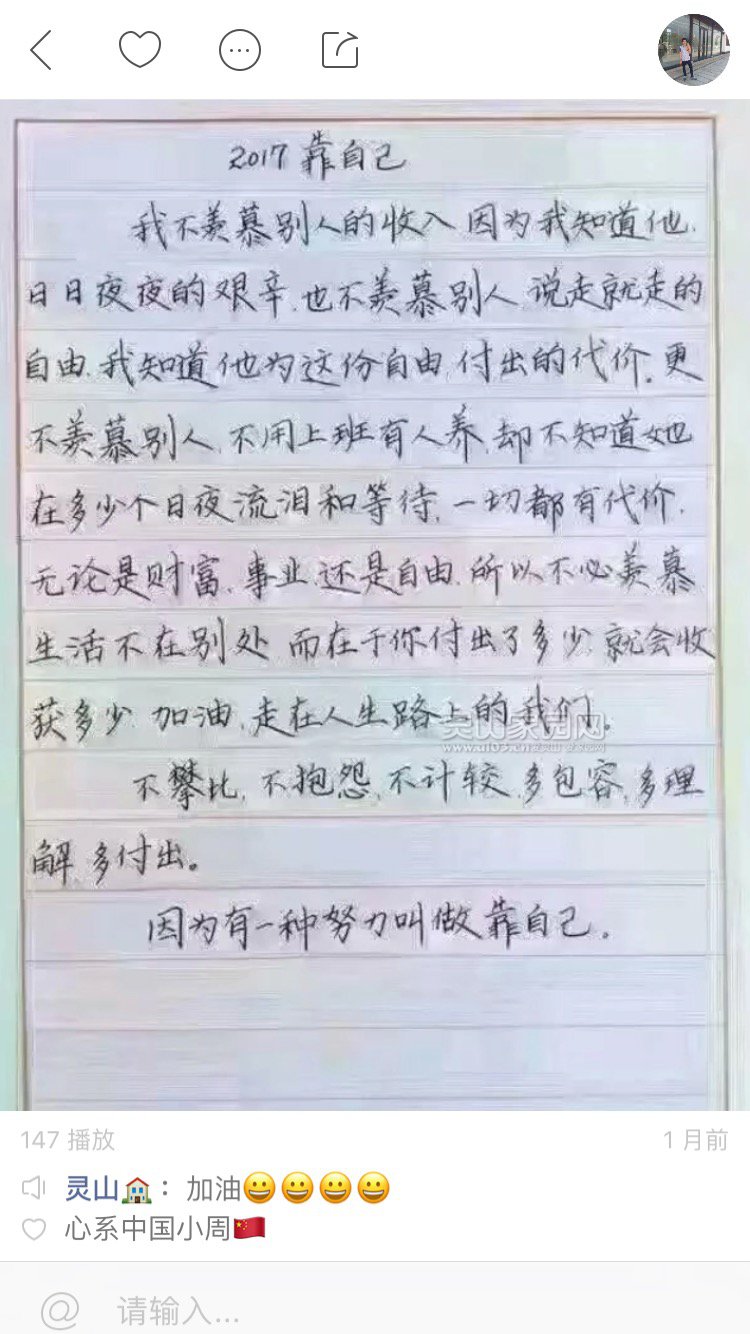 2017 靠自己
我不羡慕别人的收入 因为我知道他.
日日夜夜的艰辛.也不羡慕别人.说走就走的
自由.我知道他为这份自由.付出的代价.更
不羡慕别人.不用上班有人养.却不知道她
在多少个日夜流泪和等待.一切都有代价.
无论是财富.事业.还是自由.所以不必羡慕
生活不在别处 而在于你付出了多少.就会收
获多少.加油.走在人生路上的我们。
灵山家园网
www.ui03.cn
不攀比,不抱怨,不计较.多包容,多理
解,多付出。
因为有一种努力叫做靠自己.
147 播放
1 月前
灵山🏠：加油😀😀😀😀
心系中国小周🇨🇳
@ 请输入...